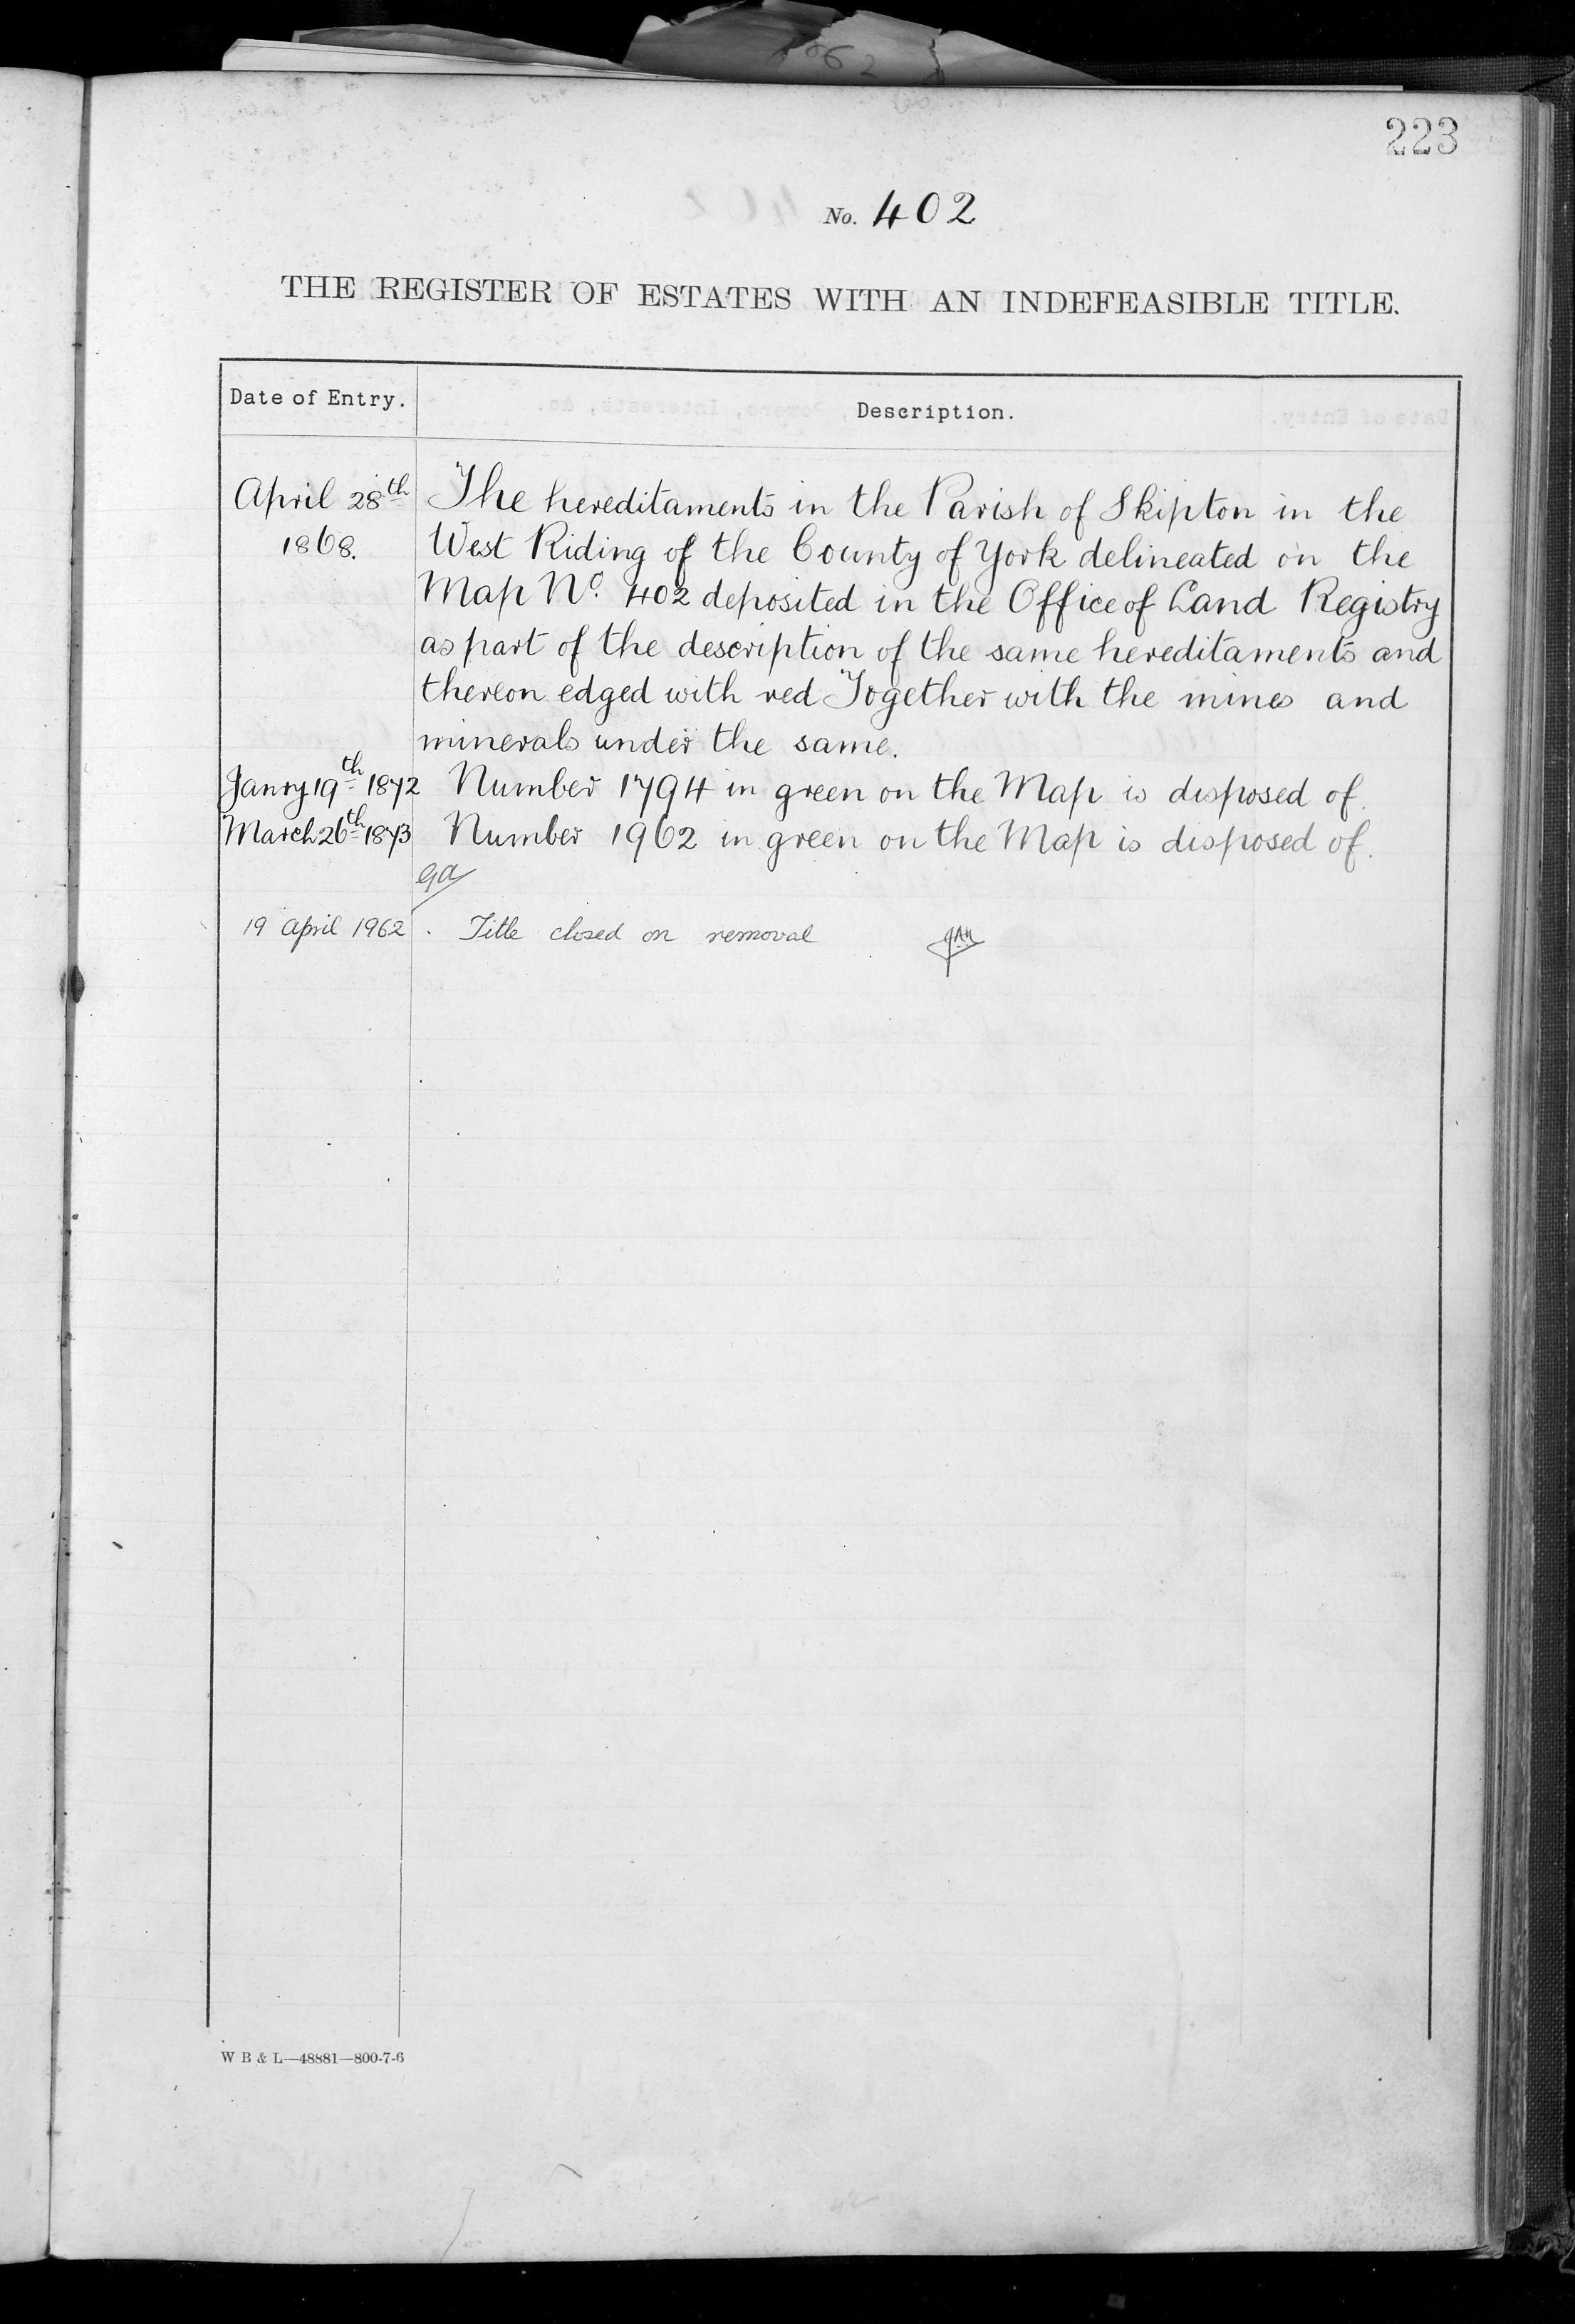 223
No. 402
THE REGISTER OF ESTATES WITH AN INDEFEASIBLE TITLE.
Date of Entry. Description.
April 28th The hereditaments in the Parish of Skipton in the
1868. West Riding of the County of York delineated on the
Map No. 402 deposited in the Office of Land Registry
as part of the description of the same hereditaments and
thereon edged with red Together with the mines and
minerals under the same.
Janry 19th 1872 Number 1794 in green on the Map is disposed of.
March 26th 1873 Number 1962 in green on the Map is disposed of.
19 April 1962. Title closed on removal JAH
W B & L—48881—800-7-6